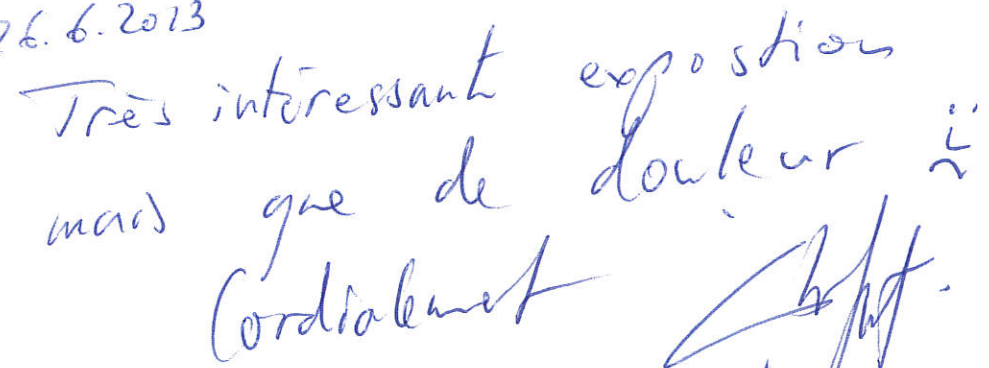 26.6.2013
Très intéressant expostion
mais que de douleur
Cordialement